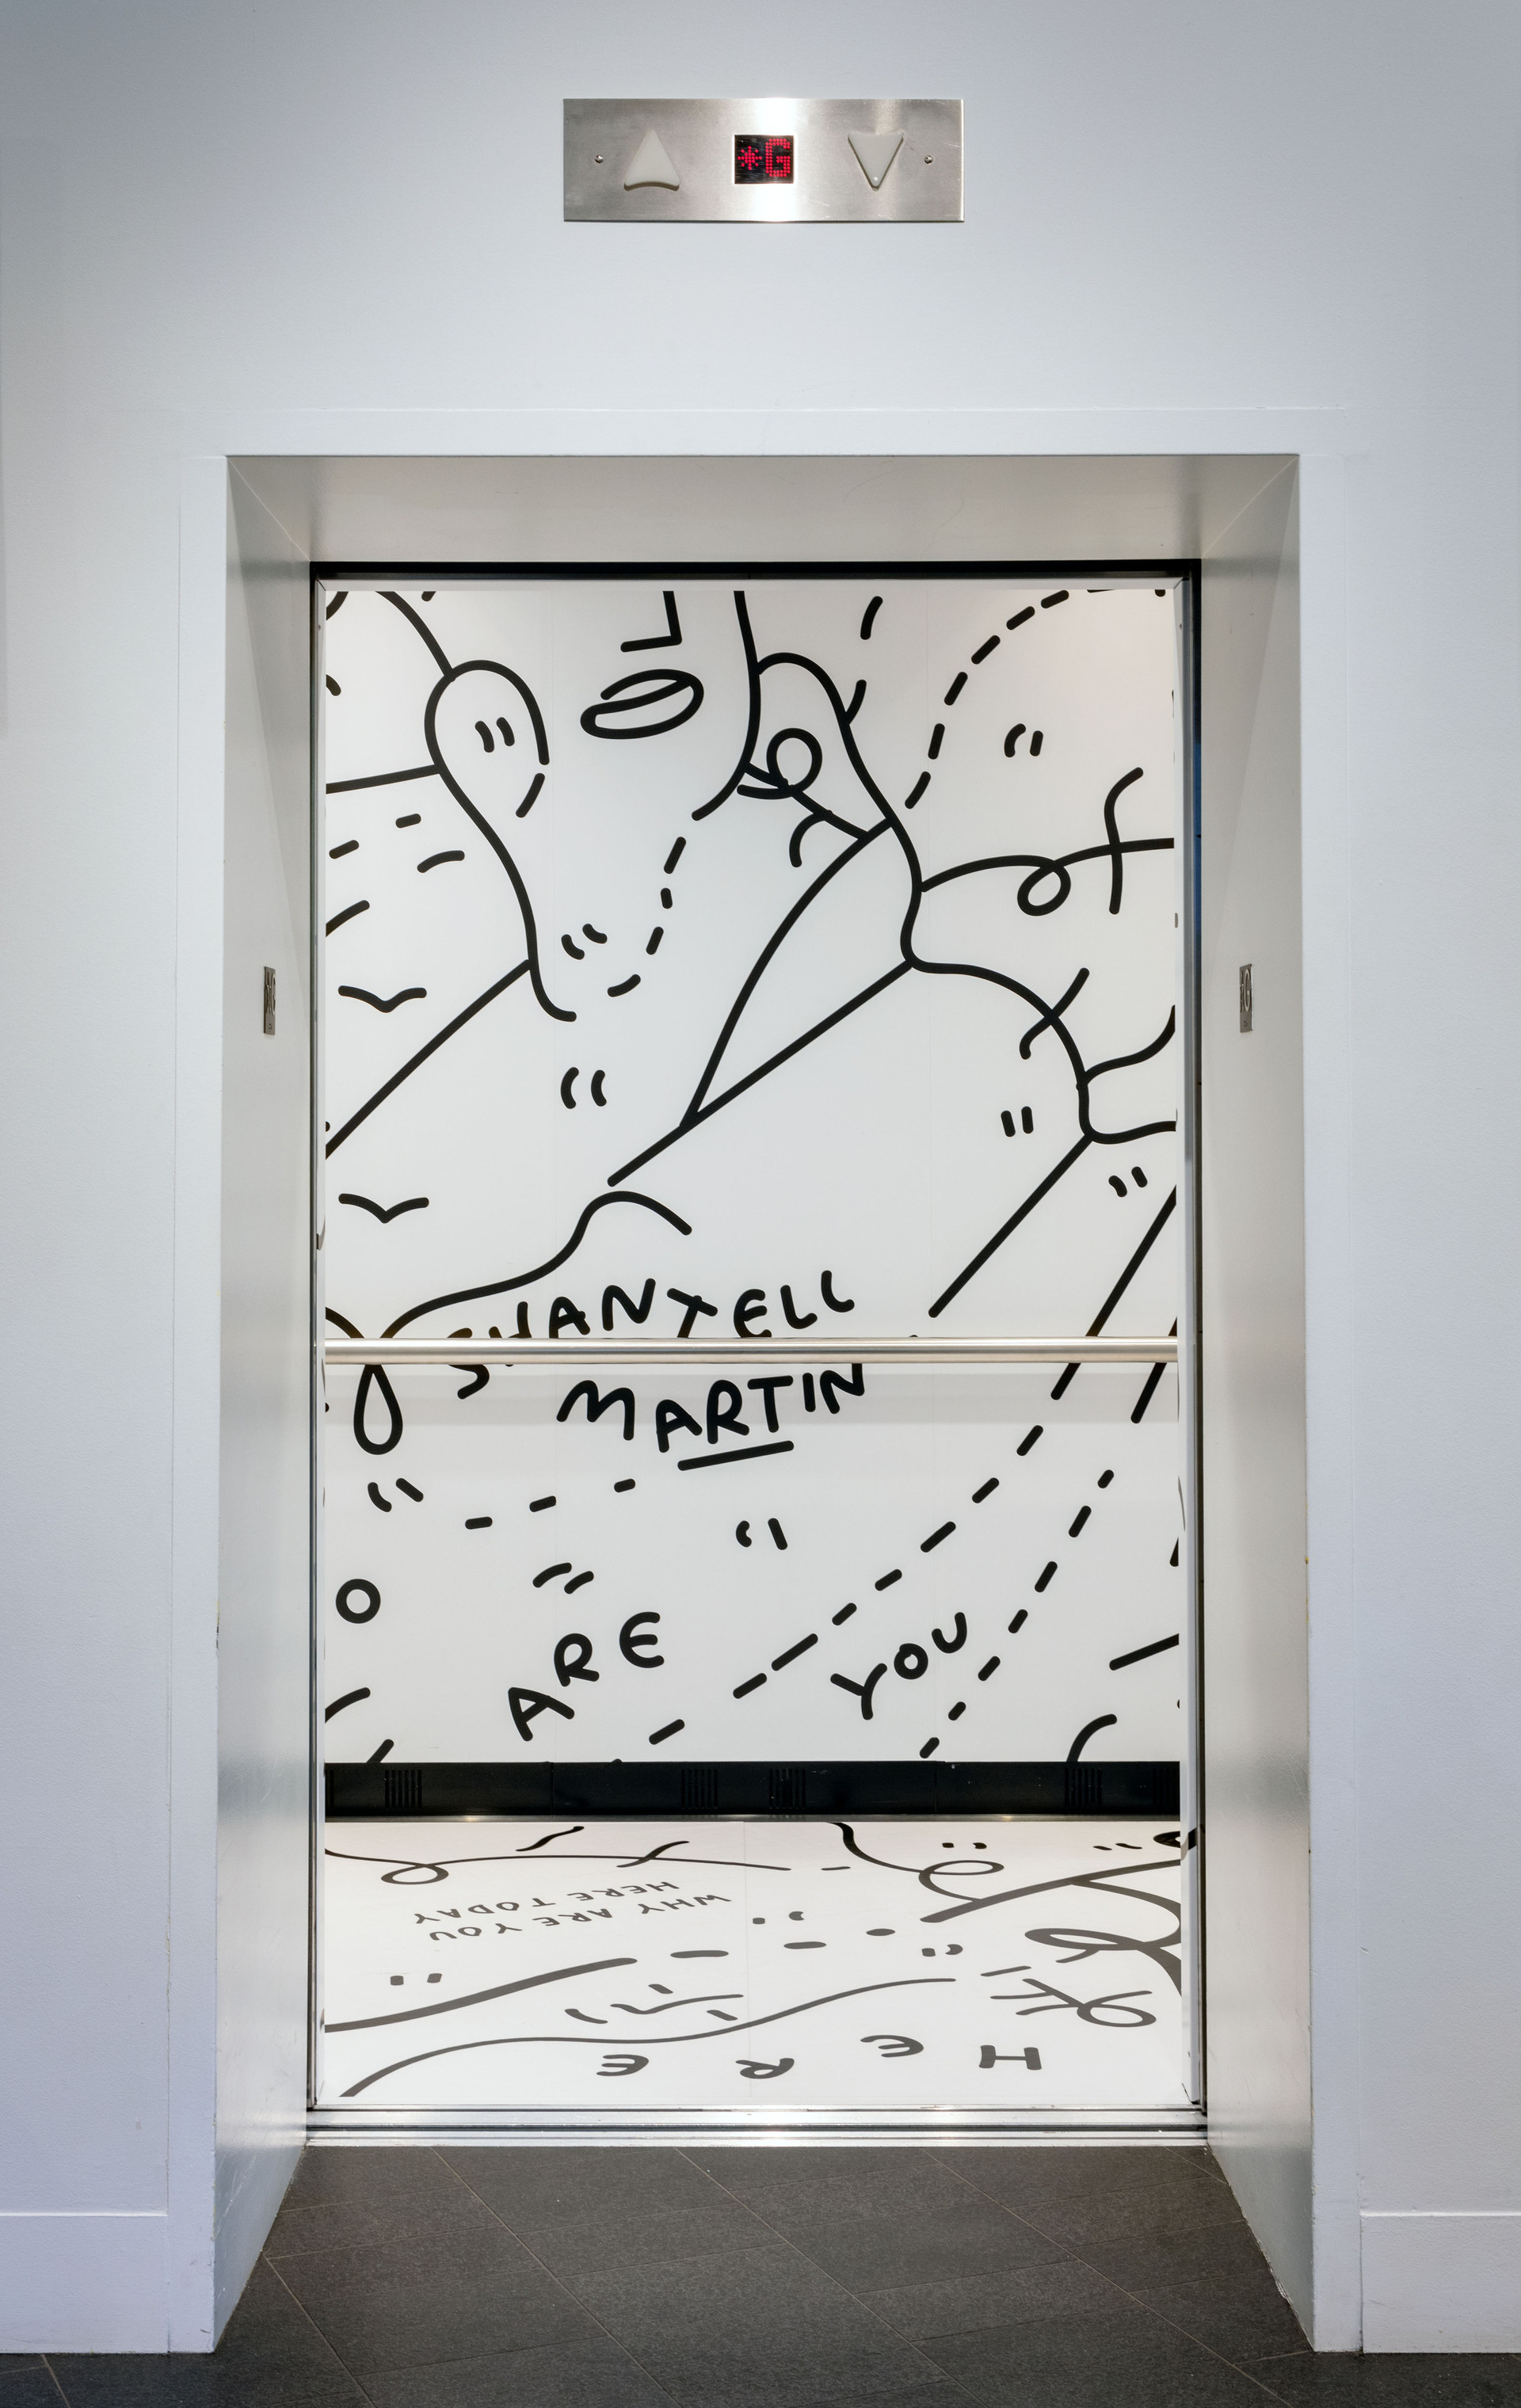 *G
SHANTELL
MARTIN
ARE YOU
WHY ARE YOU
HERE TODAY
HERE